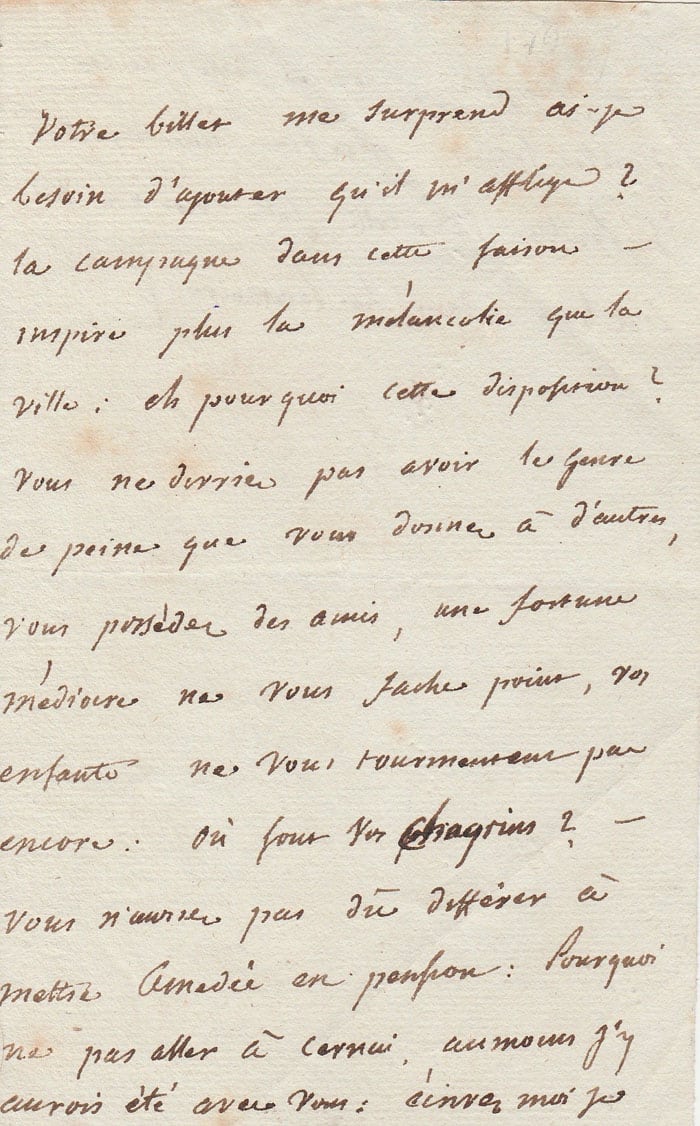 Votre billet me surprend ai-je
besoin d'ajouter qu'il m'afflige ?
la campagne dans cette saison —
inspire plus la mélancolie que la
ville : eh pourquoi cette disposition ?
vous ne devriez pas avoir le genre
de peine que vous donnez à d'autres,
vous possédez des amis, une fortune
médiocre ne vous fache point, vos
enfants ne vous tourmentent pas
encore : où sont vos chagrins ? —
vous n'auriez pas dû différer à
mettre Amedée en pension : Pourquoi
ne pas aller à cernai, aumoins j'y
aurois été avec vous : écrivez moi je